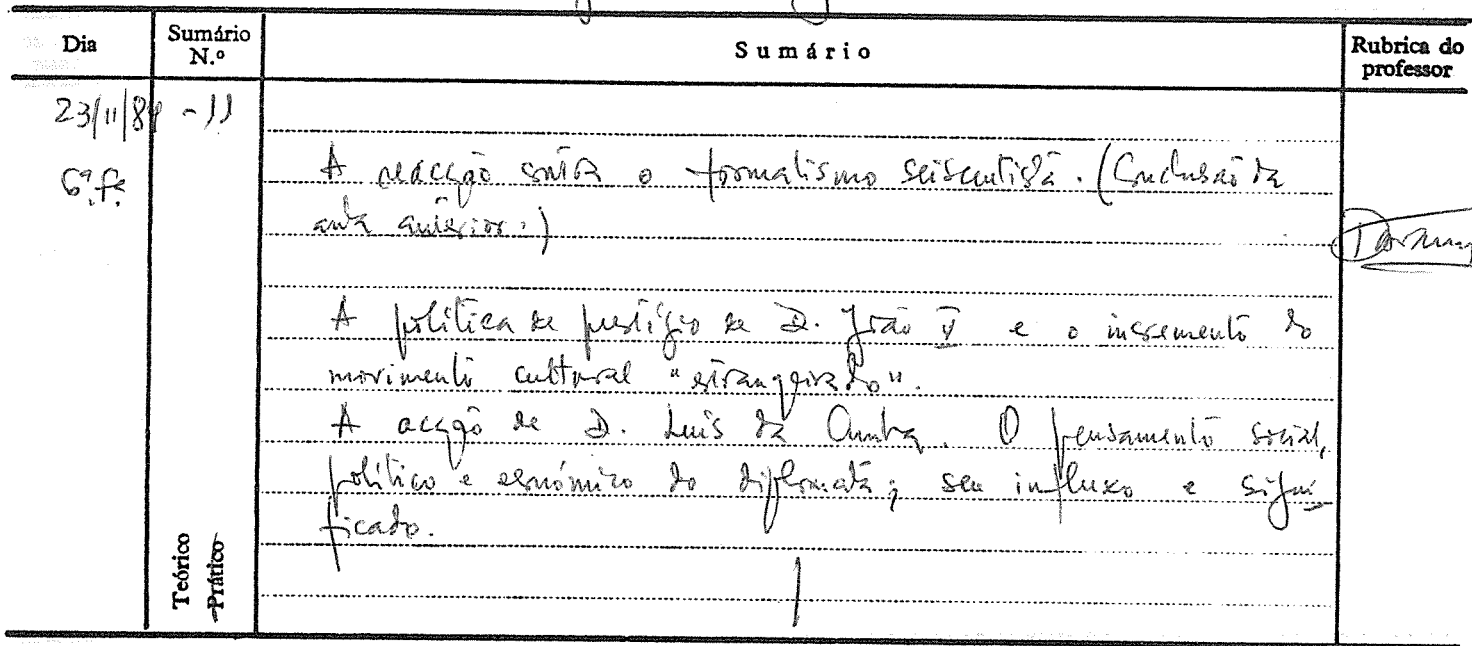 Dia Sumário N.º Sumário Rubrica do professor
23/11/84 - 11
6ª.fª
A reacção contra o formalismo seiscentista. (Conclusão da
aula anterior.)
A política de prestígio de D. João V e o incremento do
movimento cultural "estrangeirado".
A acção de D. Luís da Cunha. O pensamento social,
político e económico do diplomata; seu influxo e signi
ficado.
Teórico
Prático